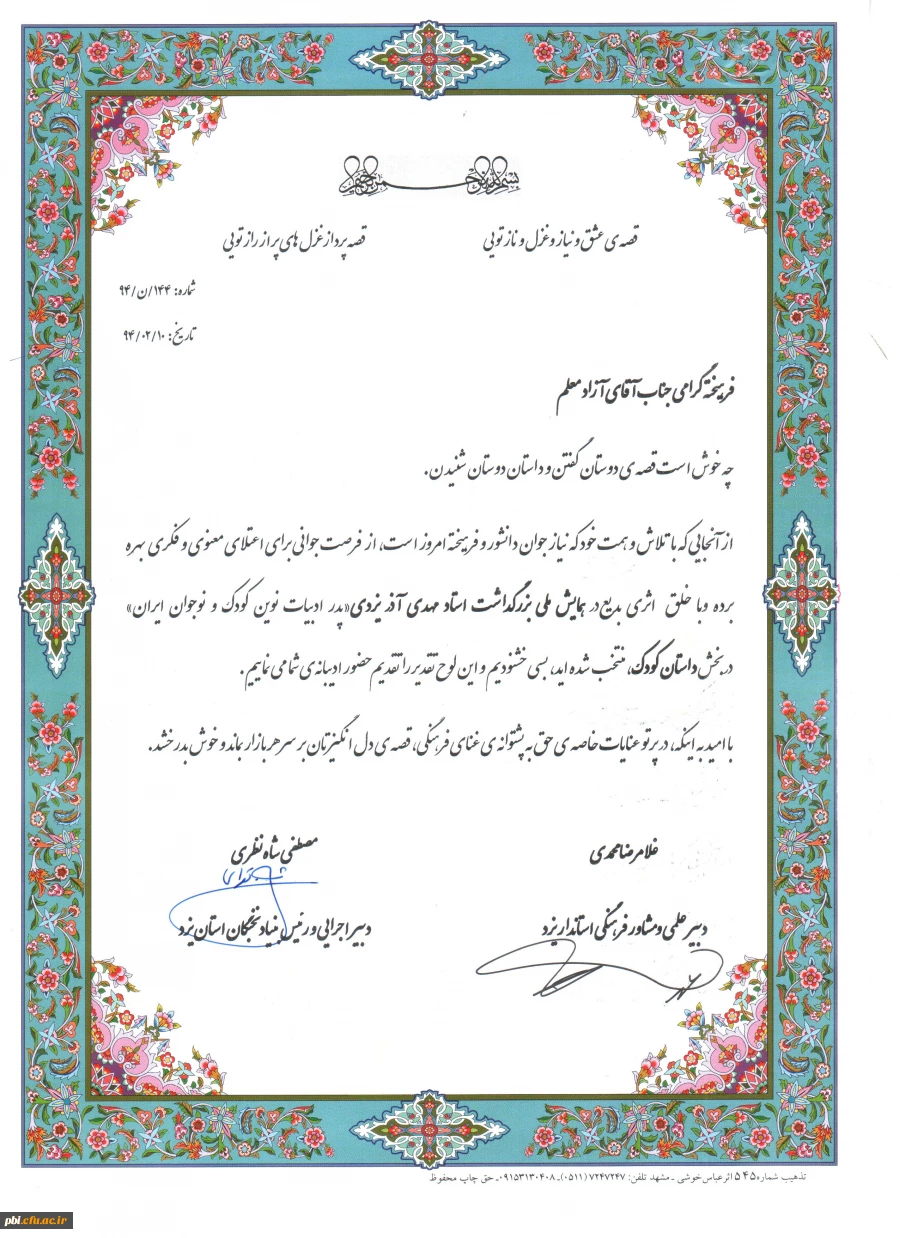 بسم الله الرحمن الرحیم
قصه ی عشق و نیاز و غزل و ناز تویی قصه پرداز غزل های پر از راز تویی
شماره: ۱۴۴/ن/۹۴
تاریخ: ۹۴/۰۲/۱۰
فرهیخته گرامی جناب آقای آزاد معلم
چه خوش است قصه ی دوستان گفتن و داستان دوستان شنیدن.
از آنجایی که با تلاش و همت خود که نیاز جوان دانشور و فرهیخته امروز است، از فرصت جوانی برای اعتلای معنوی و فکری بهره
برده وبا خلق اثری بدیع در همایش ملی بزرگداشت استاد مهدی آذر یزدی«پدر ادبیات نوین کودک و نوجوان ایران»
در بخش داستان کودک، منتخب شده اید، بسی خشنودیم و این لوح تقدیر را تقدیم حضور ادیبانه ی شما می نماییم.
با امید به اینکه، در پرتو عنایات خاصه ی حق به پشتوانه ی غنای فرهنگی، قصه ی دل انگیزتان بر سر هر بازار بماند و خوش بدرخشد.
غلامرضا محمدی مصطفی شاه نظری
دبیر علمی و مشاور فرهنگی استاندار یزد دبیر اجرایی و رئیس بنیاد نخبگان استان یزد
تذهیب شماره ۵۴۵ اثر عباس خوشی ـ مشهد تلفن: ۷۲۴۷۲۴۷ (۰۵۱۱)ـ ۰۹۱۵۳۱۳۰۴۰۸ـ حق چاپ محفوظ
pbi.cfu.ac.ir